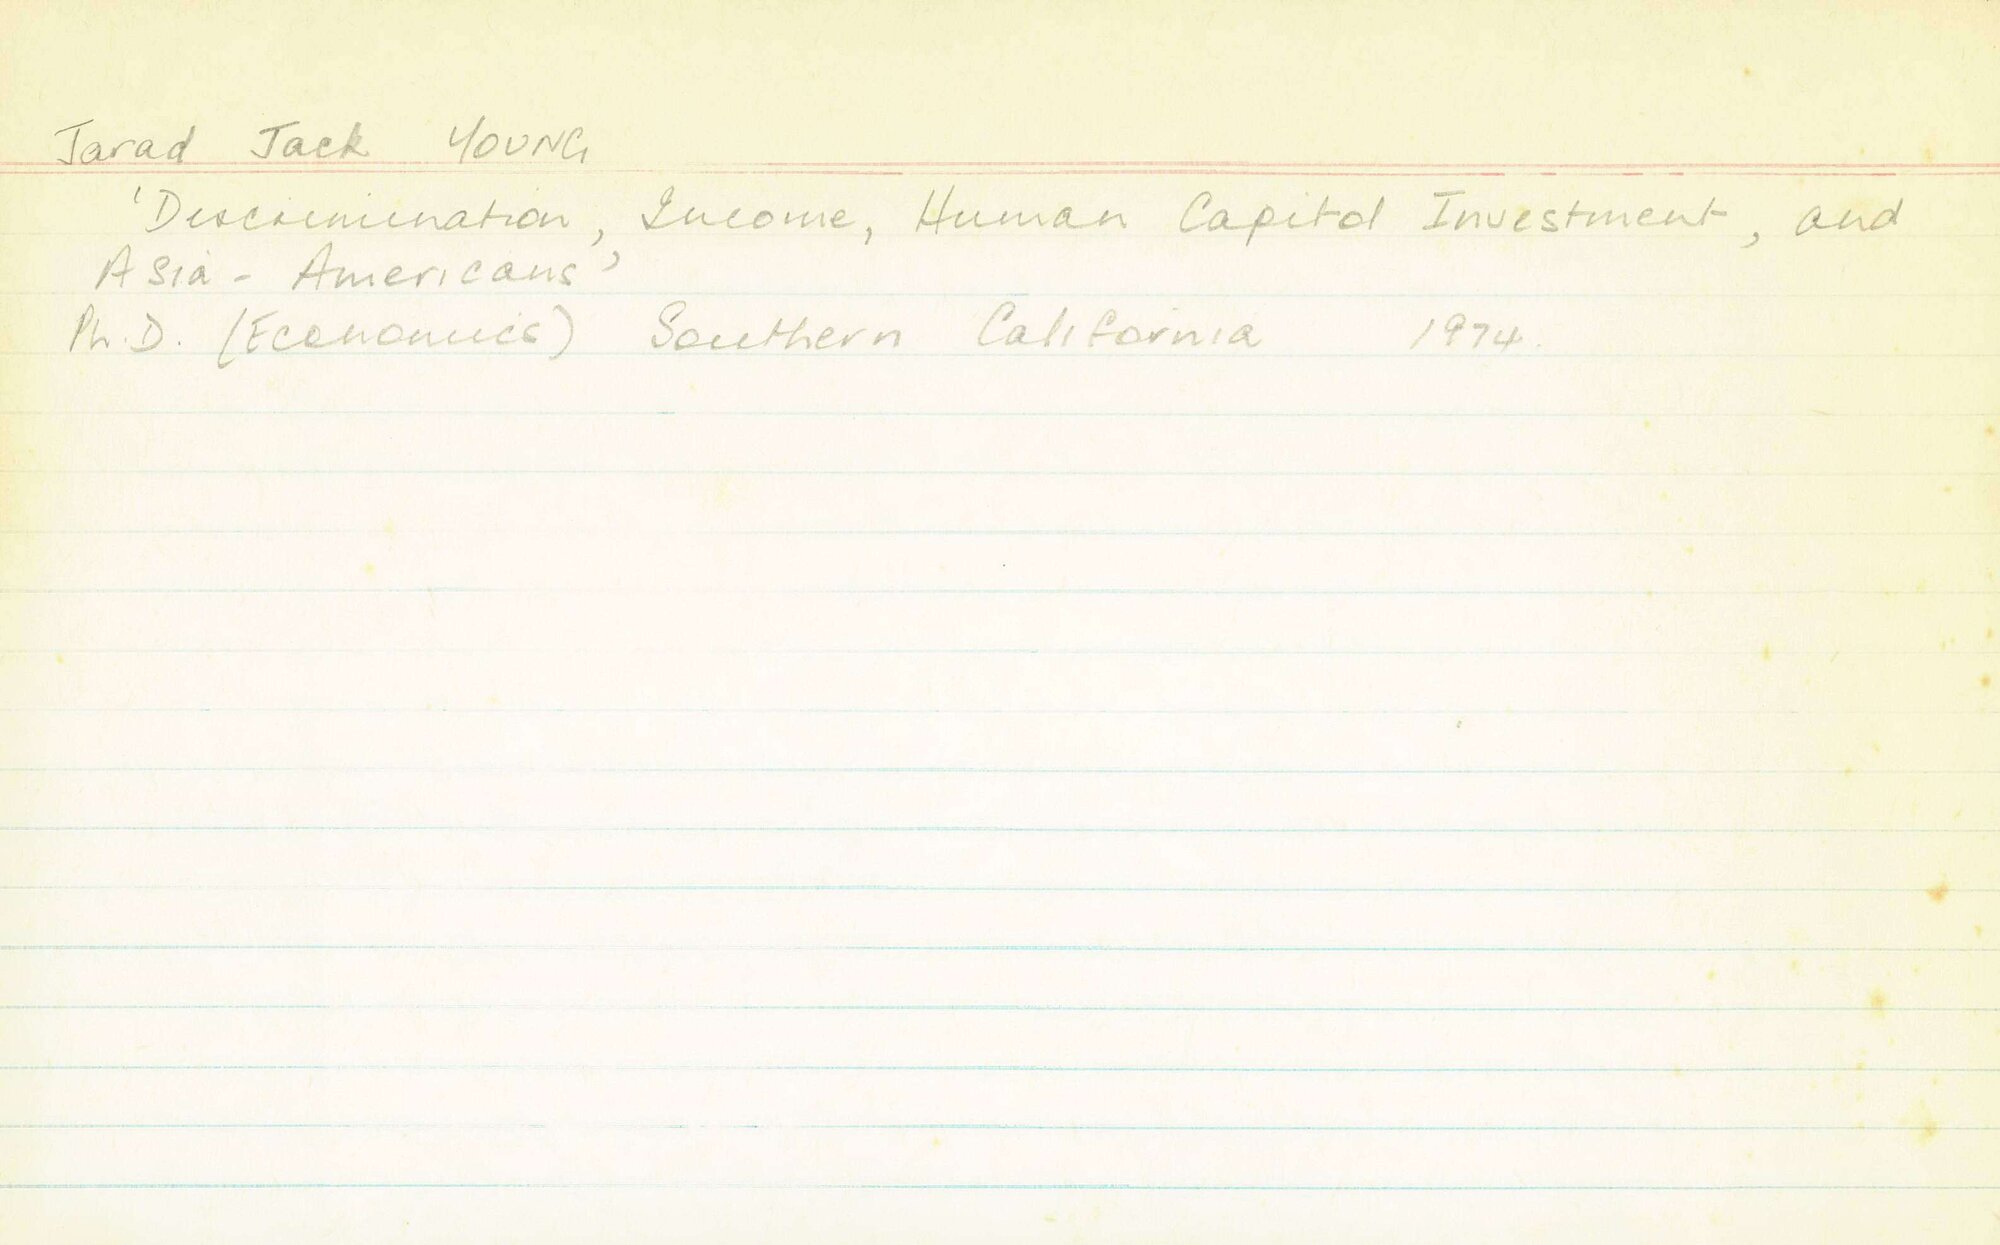 Jarad Jack YOUNG
'Discrimination, Income, Human Capital Investment, and
Asia - Americans'
Ph.D. (Economics) Southern California 1974.